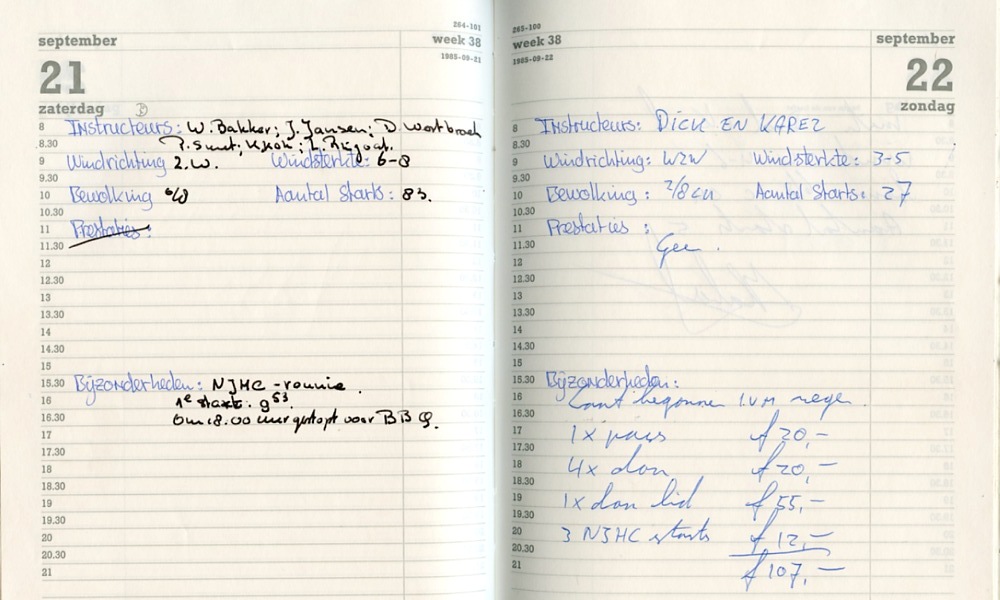 264-101
september
week 38
21
1985-09-21
zaterdag
8 Instructeurs: W. Bakker; J. Jansen; D. Westbroek
8.30 P. Smit; Kkok; L. Rigout.
9 Windrichting Z.W. Windsterkte: 6-8
9.30
10 Bewolking 6/8 Aantal Starts: 83.
10.30
11 Prestaties:
11.30
12
12.30
13
13.30
14
14.30
15
15.30 Bijzonderheden: NJHC -reunie.
16 1e start: 9 53.
16.30 Om 18.00 uur gestopt voor BBQ.
17
17.30
18
18.30
19
19.30
20
20.30
21
265-100
week 38
september
1985-09-22
22
zondag
8 Instructeurs: DICK EN KAREL
8.30
9 Windrichting: WZW Windsterkte: 3-5
9.30
10 Bewolking: 2/8 cu Aantal Starts: 27
10.30
11 Prestaties:
11.30 Geen.
12
12.30
13
13.30
14
14.30
15
15.30 Bijzonderheden:
16 Laat begonnen i.v.m regen.
16.30
17 1x pass f 20,-
17.30
18 4x don f 20,-
18.30
19 1x don lid f 55,-
19.30
20 3 NJHC starts f 12,-
20.30
21 f 107,-